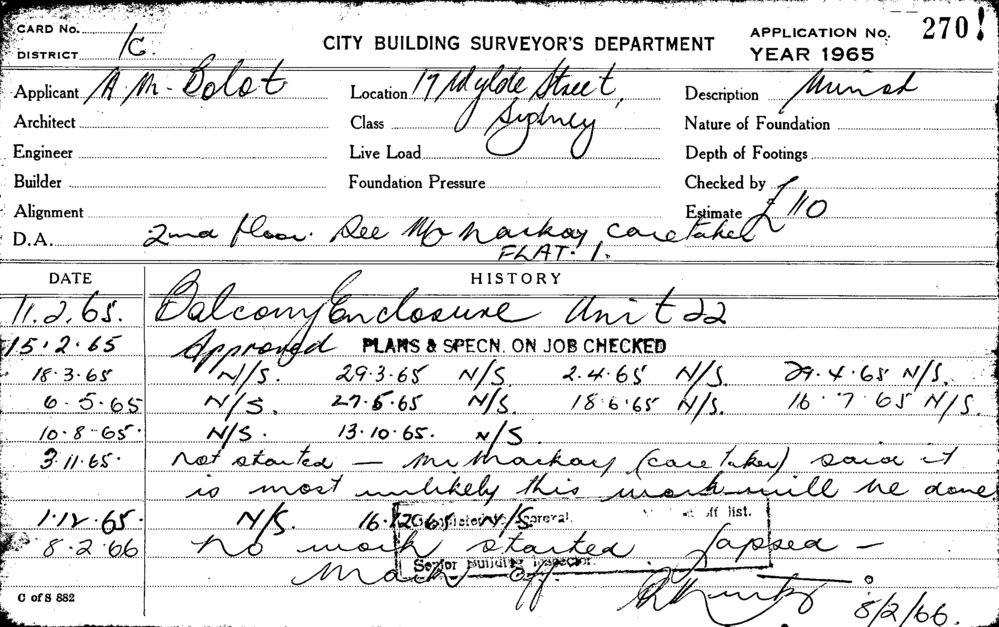 CARD No.
DISTRICT 1C.
CITY BUILDING SURVEYOR'S DEPARTMENT
APPLICATION No. 270!
YEAR 1965
Applicant A M. Bolot Location 17 Wylde Street, Description
Architect Class Sydney Nature of Foundation
Engineer Live Load Depth of Footings
Builder Foundation Pressure Checked by
Alignment Estimate £110
D.A. 2nd floor. See Mr Mackay, caretaker
FLAT. 1.
DATE HISTORY
11.2.65. Balcony Enclosure Unit 22
15.2.65 Approved PLANS & SPECN. ON JOB CHECKED
18.3.65 N/S. 29.3.65 N/S. 2.4.65 N/S. 29.4.65 N/S.
6.5.65 N/S. 27.5.65 N/S. 18.6.65 N/S. 16.7.65 N/S.
10-8-65. N/S. 13.10.65. N/S.
3.11.65. not started — Mr Mackay (caretaker) said it
is most unlikely this work will be done
1.12.65. N/S. 16.12.65 N/S. off list.
8.2.66 No work started lapsed —
Mark off.
Senior Building Inspector.
C of S 882
8/2/66.